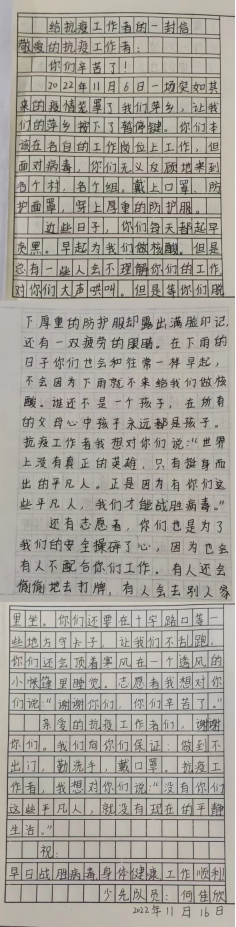 给抗疫工作者的一封信
敬爱的抗疫工作者：
你们辛苦了！
2022年11月6日一场突如其
来的疫情笼罩了我们萍乡，让我
们的萍乡按下了暂停键。你们本
该在各自的工作岗位上工作，但
面对病毒，你们无义反顾地来到
各个村，各个组。戴上口罩，防
护面罩，穿上厚重的防护服。
近些日子，你们每天都起早
贪黑。早起为我们做核酸。但是
总有一些人会不理解你们的工作，
对你们大声哄叫。但是等你们脱
下厚重的防护服却露出满脸印记，
还有一双疲劳的眼睛。在下雨的
日子你们也会和往常一样早起，
不会因为下雨就不来给我们做核
酸。谁还不是一个孩子，在所有
的父母心中孩子永远都是孩子。
抗疫工作者我想对你们说：“世界
上没有真正的英雄，只有挺身而
出的平凡人。正是因为有你们这
些平凡人，我们才能战胜病毒。”
还有志愿者，你们也是为了
我们的安全操碎了心，因为也会
有人不配合你们工作。有人还会
偷偷地去打牌，有人会去别人家
里坐。你们还要在十字路口等一
些地方守卡子，让我们不乱跑，
你们还会顶着寒风在一个透风的
小帐篷里睡觉。志愿者我想对你
们说：“谢谢你们，你们辛苦了。”
亲爱的抗疫工作者们，谢谢
你们。我们向你们保证：做到不
出门，勤洗手，戴口罩。抗疫工
作者，我想对你们说：“没有你们
这些平凡人，就没有现在的平静
生活。”
祝：
早日战胜病毒，身体健康，工作顺利
少先队员：何佳欣
2022年11月16日